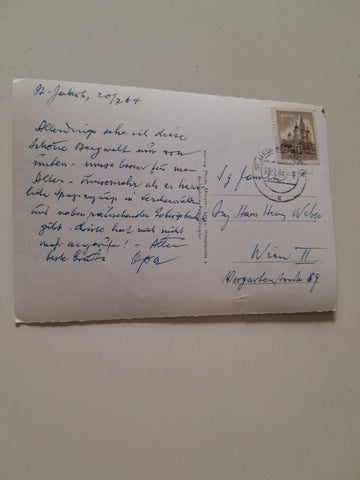 St. Jakob, 20/7 64
Allerdings sehe ich diese
schöne Bergwelt nur von
unten - umso besser für mein
Alter - umsomehr als es herr-
liche Spaziergänge in Lerchenwälder
und neben rauschende
gibt. Diese hat mich nicht
angegriffen! - Allen
beste Grüße Opa
Sg Familie
Ing Hans Heinz Weber
Wien II
Vorgartenstraße 89